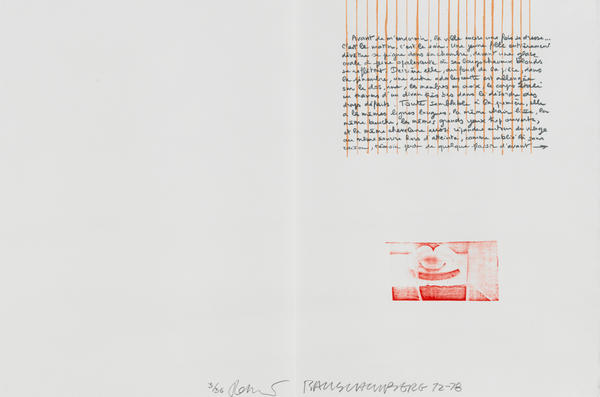 Avant de m'endormir, la ville encore une fois se dresse...
C'est le matin, c'est le soir. Une jeune fille entièrement
dévêtue se peigne dans sa chambre, devant une glace
ovale de les longs cheveux blonds
se reflètent. Derrière elle, au fond de la pièce, dans
la pénombre, une autre adolescente est allongée
sur le dos, nue, les membres en croix, le corps étalé
en travers d'un divan très bas dans le désordre des
draps défaits. Toute semblable à la première, elle
a les mêmes lignes longues, la même chair lisse, la
même bouche, les mêmes grands yeux trop ouverts,
et la même chevelure aussi, répandue autour du visage
au même sourire hors d'atteinte, comme oublié là sans
raison, témoin de quelque plaisir d'avant →
3/36 RAUSCHENBERG 72-78